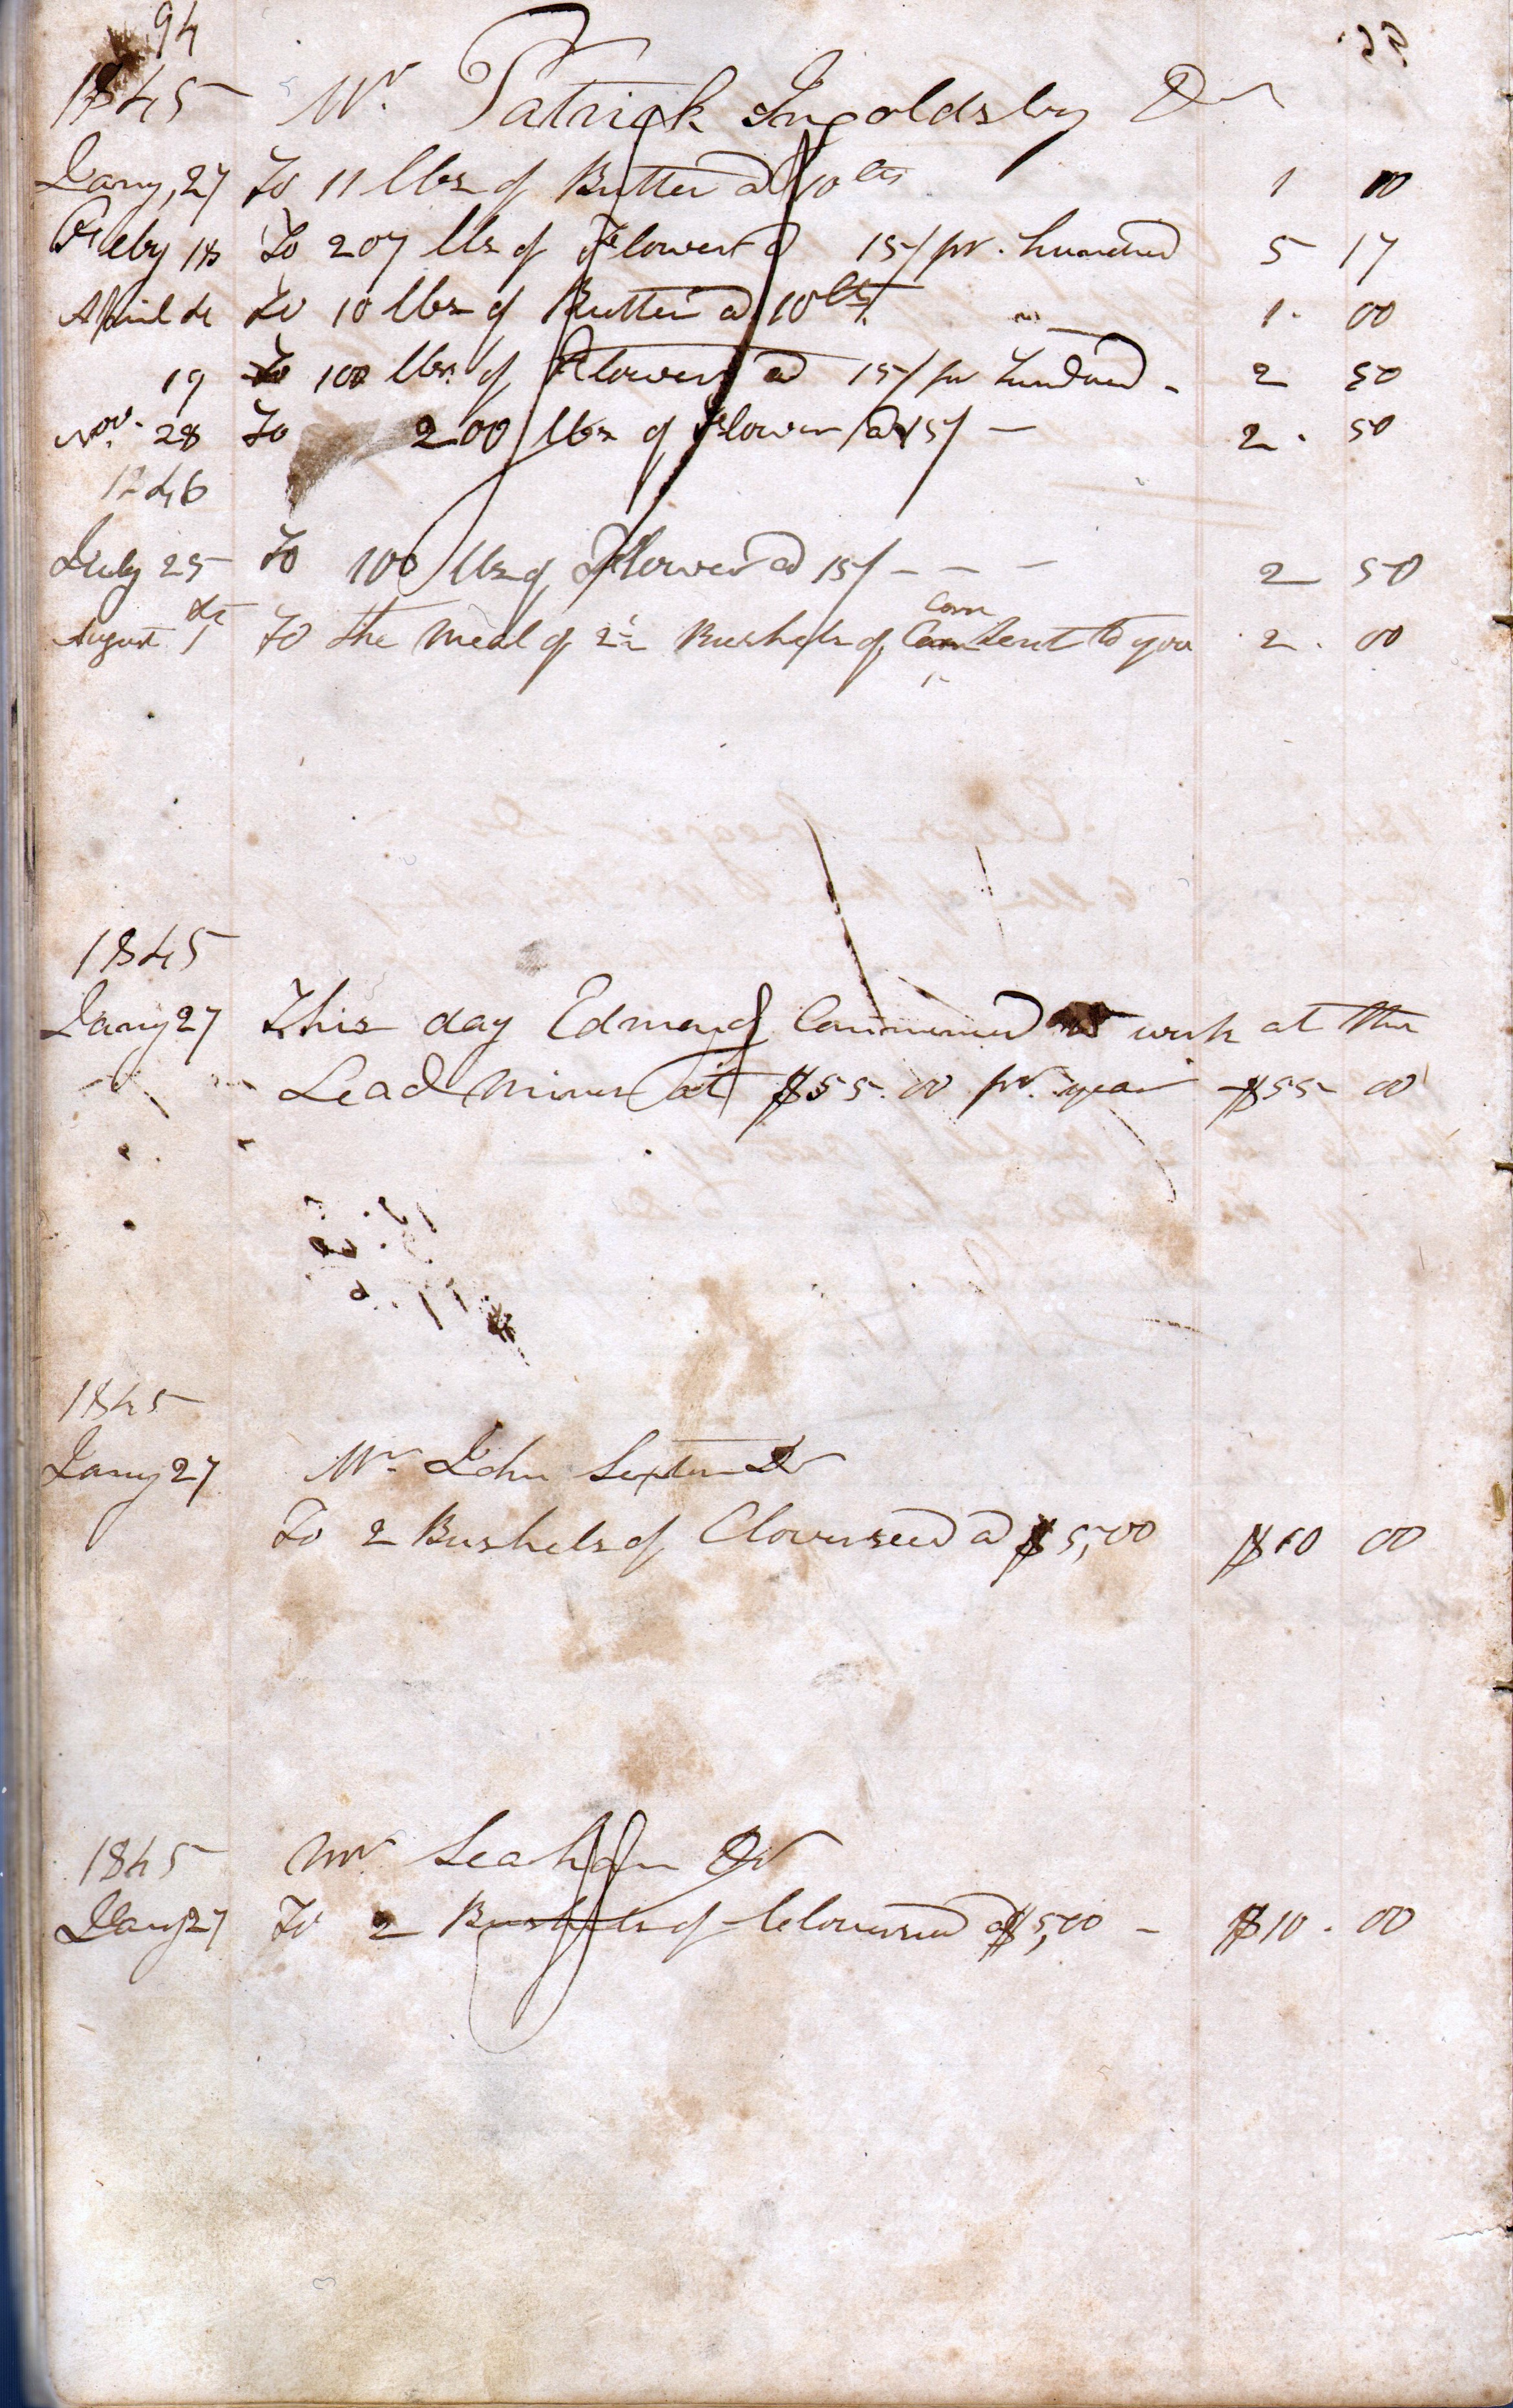 94
1845 Mr. Patrick Ingoldsby Dr
Jany, 27 To 11 lbs of Butter a 10 cts 1 10
Feby 18 To 207 lbs of Flower a 15/ pr. hundred 5 17
April 4 To 10 lbs of Butter a 10 cts 1. 00
19 To 100 lbs. of Flower a 15/ pr hundred - 2 50
Nov. 28 To 200 lbs of Flower a 15/ - 2. 50
1846
July 25 To 100 lbs of Flower a 15/ - - - 2 50
August 1 To the meal of 2½ Bushels of Corn sent to you 2. 00
1845
Jany 27 This day Edmond Commenced to work at the
Lead mines at $55.00 pr. year $55 00
1845
Jany 27 Mr. John Dr
To 2 Bushels of Cloverseed a $5,00 $10 00
1845 Mr Dr
Jany 27 To 2 Bushels of Cloverseed a $5,00 - $10. 00